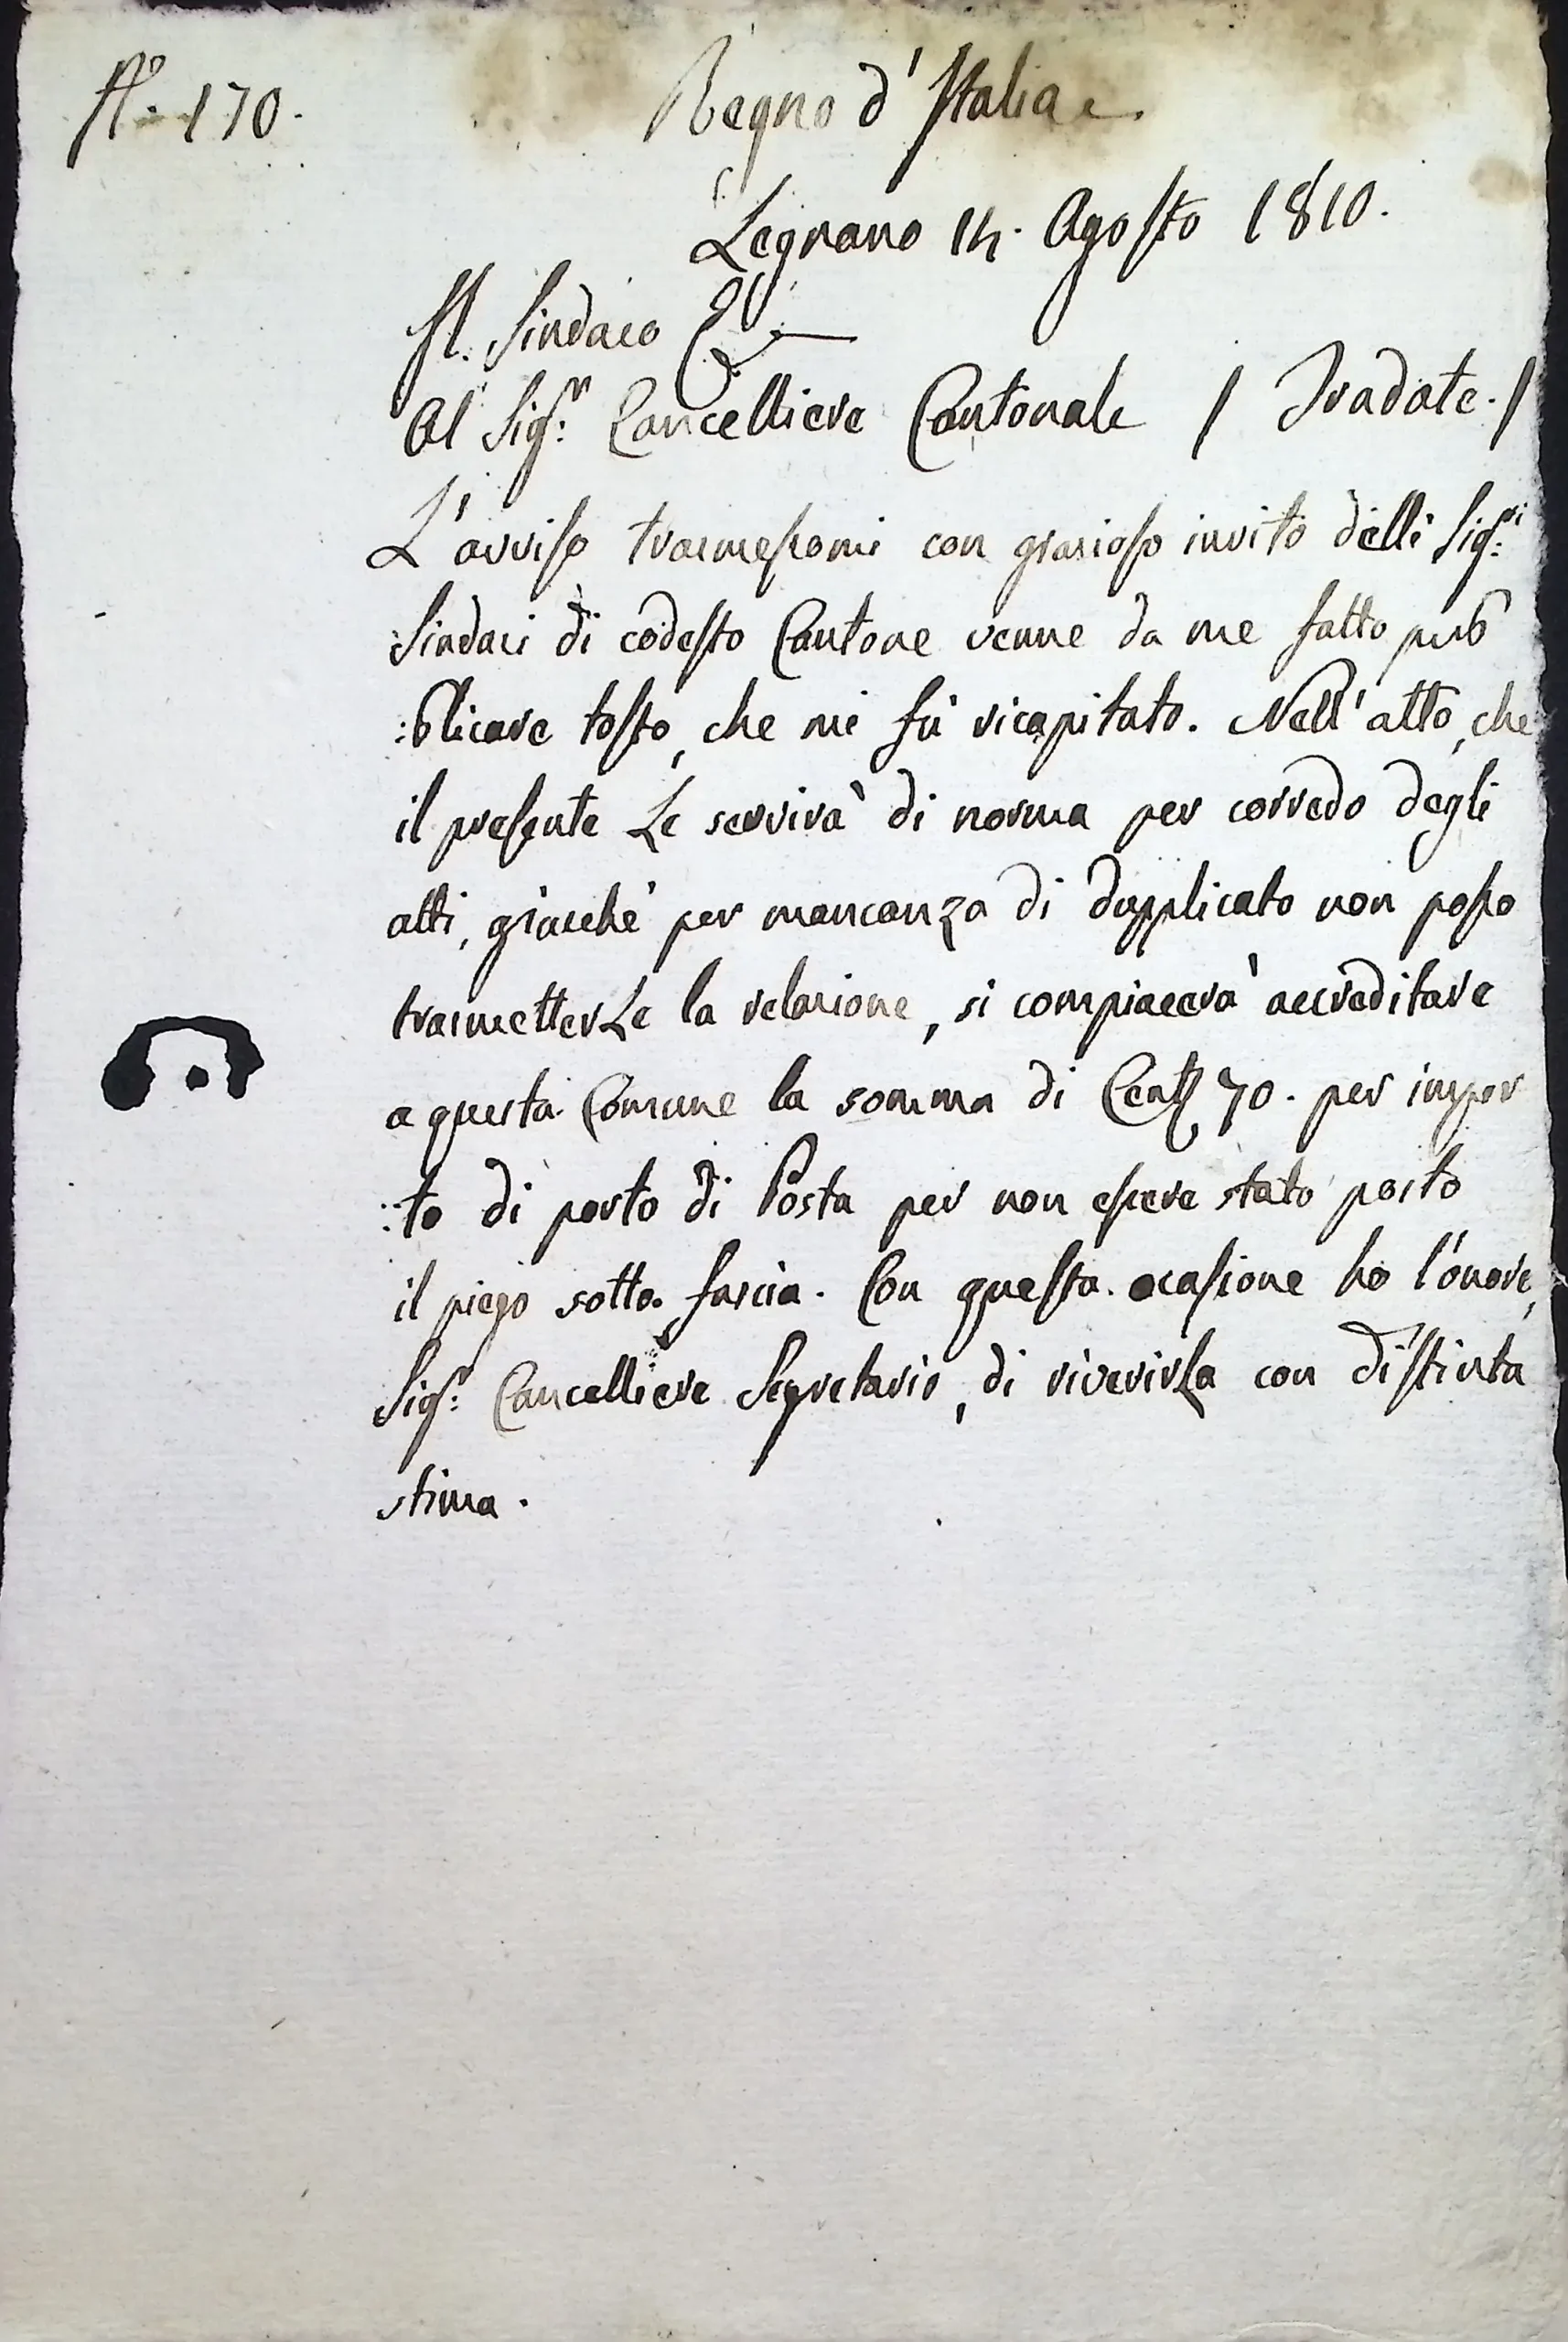 N.° 170.
Regno d'Italia
Legnano 14. Agosto 1810.
Il Sindaco
Al Sig.r Cancelliere Cantonale / Tradate. /
L'avviso trasmessomi con grazioso invito delli Sig.ri
Sindaci di codesto Cantone venne da me fatto pub
:blicare tosto, che mi fù ricapitato. Nell'atto, che
il presente Le servirà di norma per corredo degli
atti, giacchè per mancanza di dupplicato non posso
trasmetterLe la relazione, si compiacerà accreditare
a questa Comune la somma di Cent 70. per impor
:to di porto di Posta per non essere stato posto
il piego sotto fascia. Con questa ocasione ho l'onore,
Sig.r Cancelliere Segretario, di riverirLa con distinta
stima.